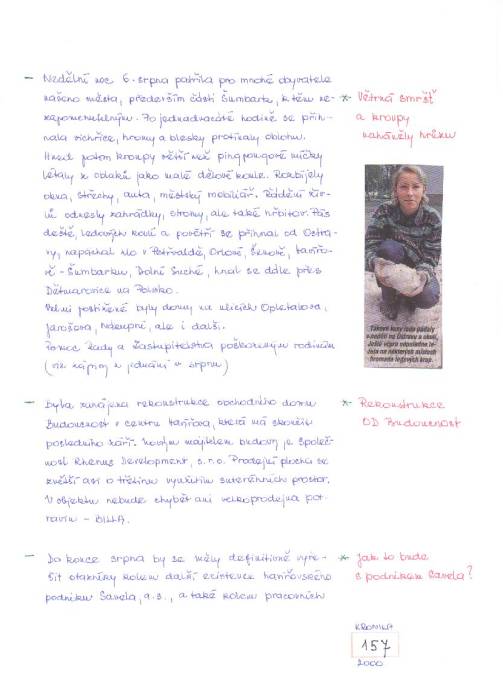 - Nedělní noc 6. srpna patřila pro mnohé obyvatele
našeho města, především části Šumbark, k těm ne-
zapomenutelným. Po jedenadvacáté hodině se přih-
nala vichřice, hromy a blesky protínaly oblohu.
Hned potom kroupy větší než pingpongové míčky
létaly z oblaků jako malé dělové koule. Rozbíjely
okna, střechy, auta, městský mobiliář. Řádění živ-
lů odnesly zahrádky, stromy, ale také hřbitov. Pás
deště, ledových koulí a povětří se přihnal od Ostra-
vy, napáchal zlo v Petřvaldě, Orlové, Šenově, Havířo-
vě - Šumbarku, Dolní Suché, hnal se dále přes
Dětmarovice na Polsko.
Velmi postižené byly domy na ulicích Opletalova,
Jarošova, Nezvupní, ale i další.
Pomoc Rady a Zastupitelstva poškozeným rodinám
(viz zápisy z jednání v srpnu)
* Větrná smršť
a kroupy
naháněly hrůzu
Takové kusy ledu padaly
v neděli na Ostravu a okolí.
Ještě včera odpoledne le-
žela na některých místech
hromada ledových krup.
- Byla zahájena rekonstrukce obchodního domu
Budoucnost v centru Havířova, která má skončit
posledního září. Novým majitelem budovy je společ-
nost Rhenus Development, s.r.o. Prodejní plocha se
zvětší asi o třetinu využitím suterénních prostor.
V objektu nebude chybět ani velkoprodejna pot-
ravin - BILLA.
* Rekonstrukce
OD Budoucnost
- Do konce srpna by se měly definitivně vyře-
šit otazníky kolem další existence havířovského
podniku Savela, a.s., a také kolem pracovních
* Jak to bude
s podnikem Savela?
KRONIKA
157
2000